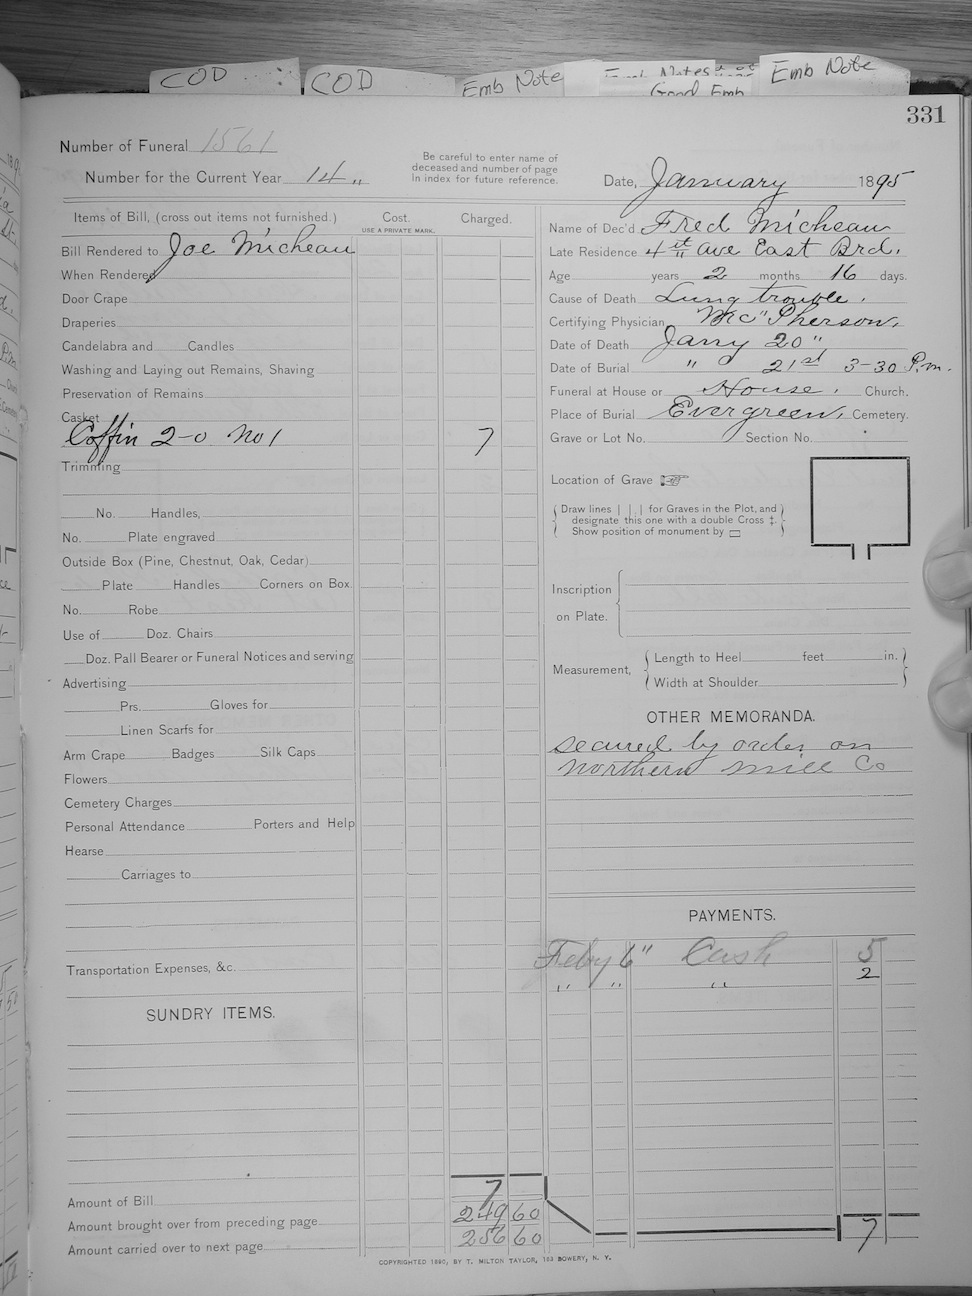 COD
COD
Emb Note
Emb Notes
Good Emb
Emb Note
331
Number of Funeral 1561
Number for the Current Year 14 "
Be careful to enter name of
deceased and number of page
in index for future reference.
Date, January 1895
Items of Bill, (cross out items not furnished.)
Cost.
USE A PRIVATE MARK.
Charged.
Bill Rendered to Joe Micheau
When Rendered
Door Crape
Draperies
Candelabra and Candles
Washing and Laying out Remains, Shaving
Preservation of Remains
Casket
Coffin 2-0 No 1 7
Trimming
No. Handles,
No. Plate engraved
Outside Box (Pine, Chestnut, Oak, Cedar)
Plate Handles Corners on Box.
No. Robe
Use of Doz. Chairs
Doz. Pall Bearer or Funeral Notices and serving
Advertising
Prs. Gloves for
Linen Scarfs for
Arm Crape Badges Silk Caps
Flowers
Cemetery Charges
Personal Attendance Porters and Help
Hearse
Carriages to
Transportation Expenses, &c.
SUNDRY ITEMS.
Amount of Bill 7
Amount brought over from preceding page 249 60
Amount carried over to next page 256 60
Name of Dec'd Fred Micheau
Late Residence 4st " Ave East Brd.
Age years 2 months 16 days.
Cause of Death Lung trouble.
Certifying Physician Mc"Pherson.
Date of Death Jany 20"
Date of Burial " 21st 3-30 P.m.
Funeral at House or House. Church.
Place of Burial Evergreen, Cemetery.
Grave or Lot No. Section No.
Location of Grave
Draw lines | | | for Graves in the Plot, and
designate this one with a double Cross ‡.
Show position of monument by ▭
Inscription
on Plate.
Measurement,
Length to Heel feet in.
Width at Shoulder
OTHER MEMORANDA.
secured by order on
Northern Mill Co
PAYMENTS.
Feby 6" Cash 5
" " " 2
7
COPYRIGHTED 1890, BY T. MILTON TAYLOR, 163 BOWERY, N. Y.